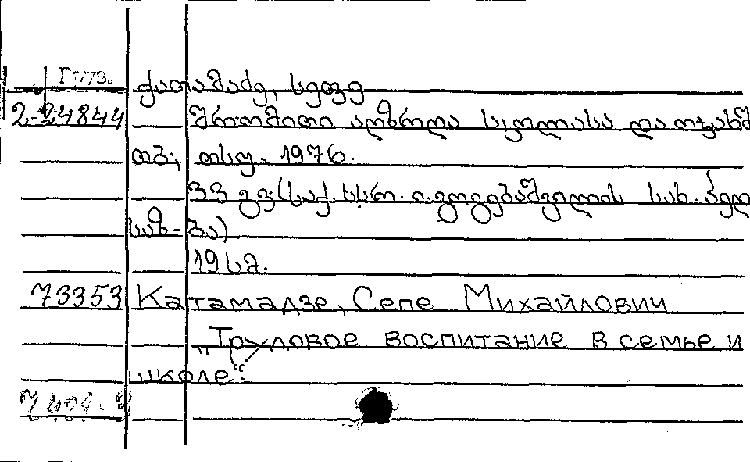 ქათამაძე, სეფე
2-24844 შრომითი აღზრდა სკოლასა და ოჯახში
თბ., თსუ. 1976.
33 გვ. (საქ. სსრ. ი. გოგებაშვილის სახ. პედ.
საზ-ბა)
73353 Катамадзе, Сепе Михайлович
„Трудовое воспитание в семье и
школе".